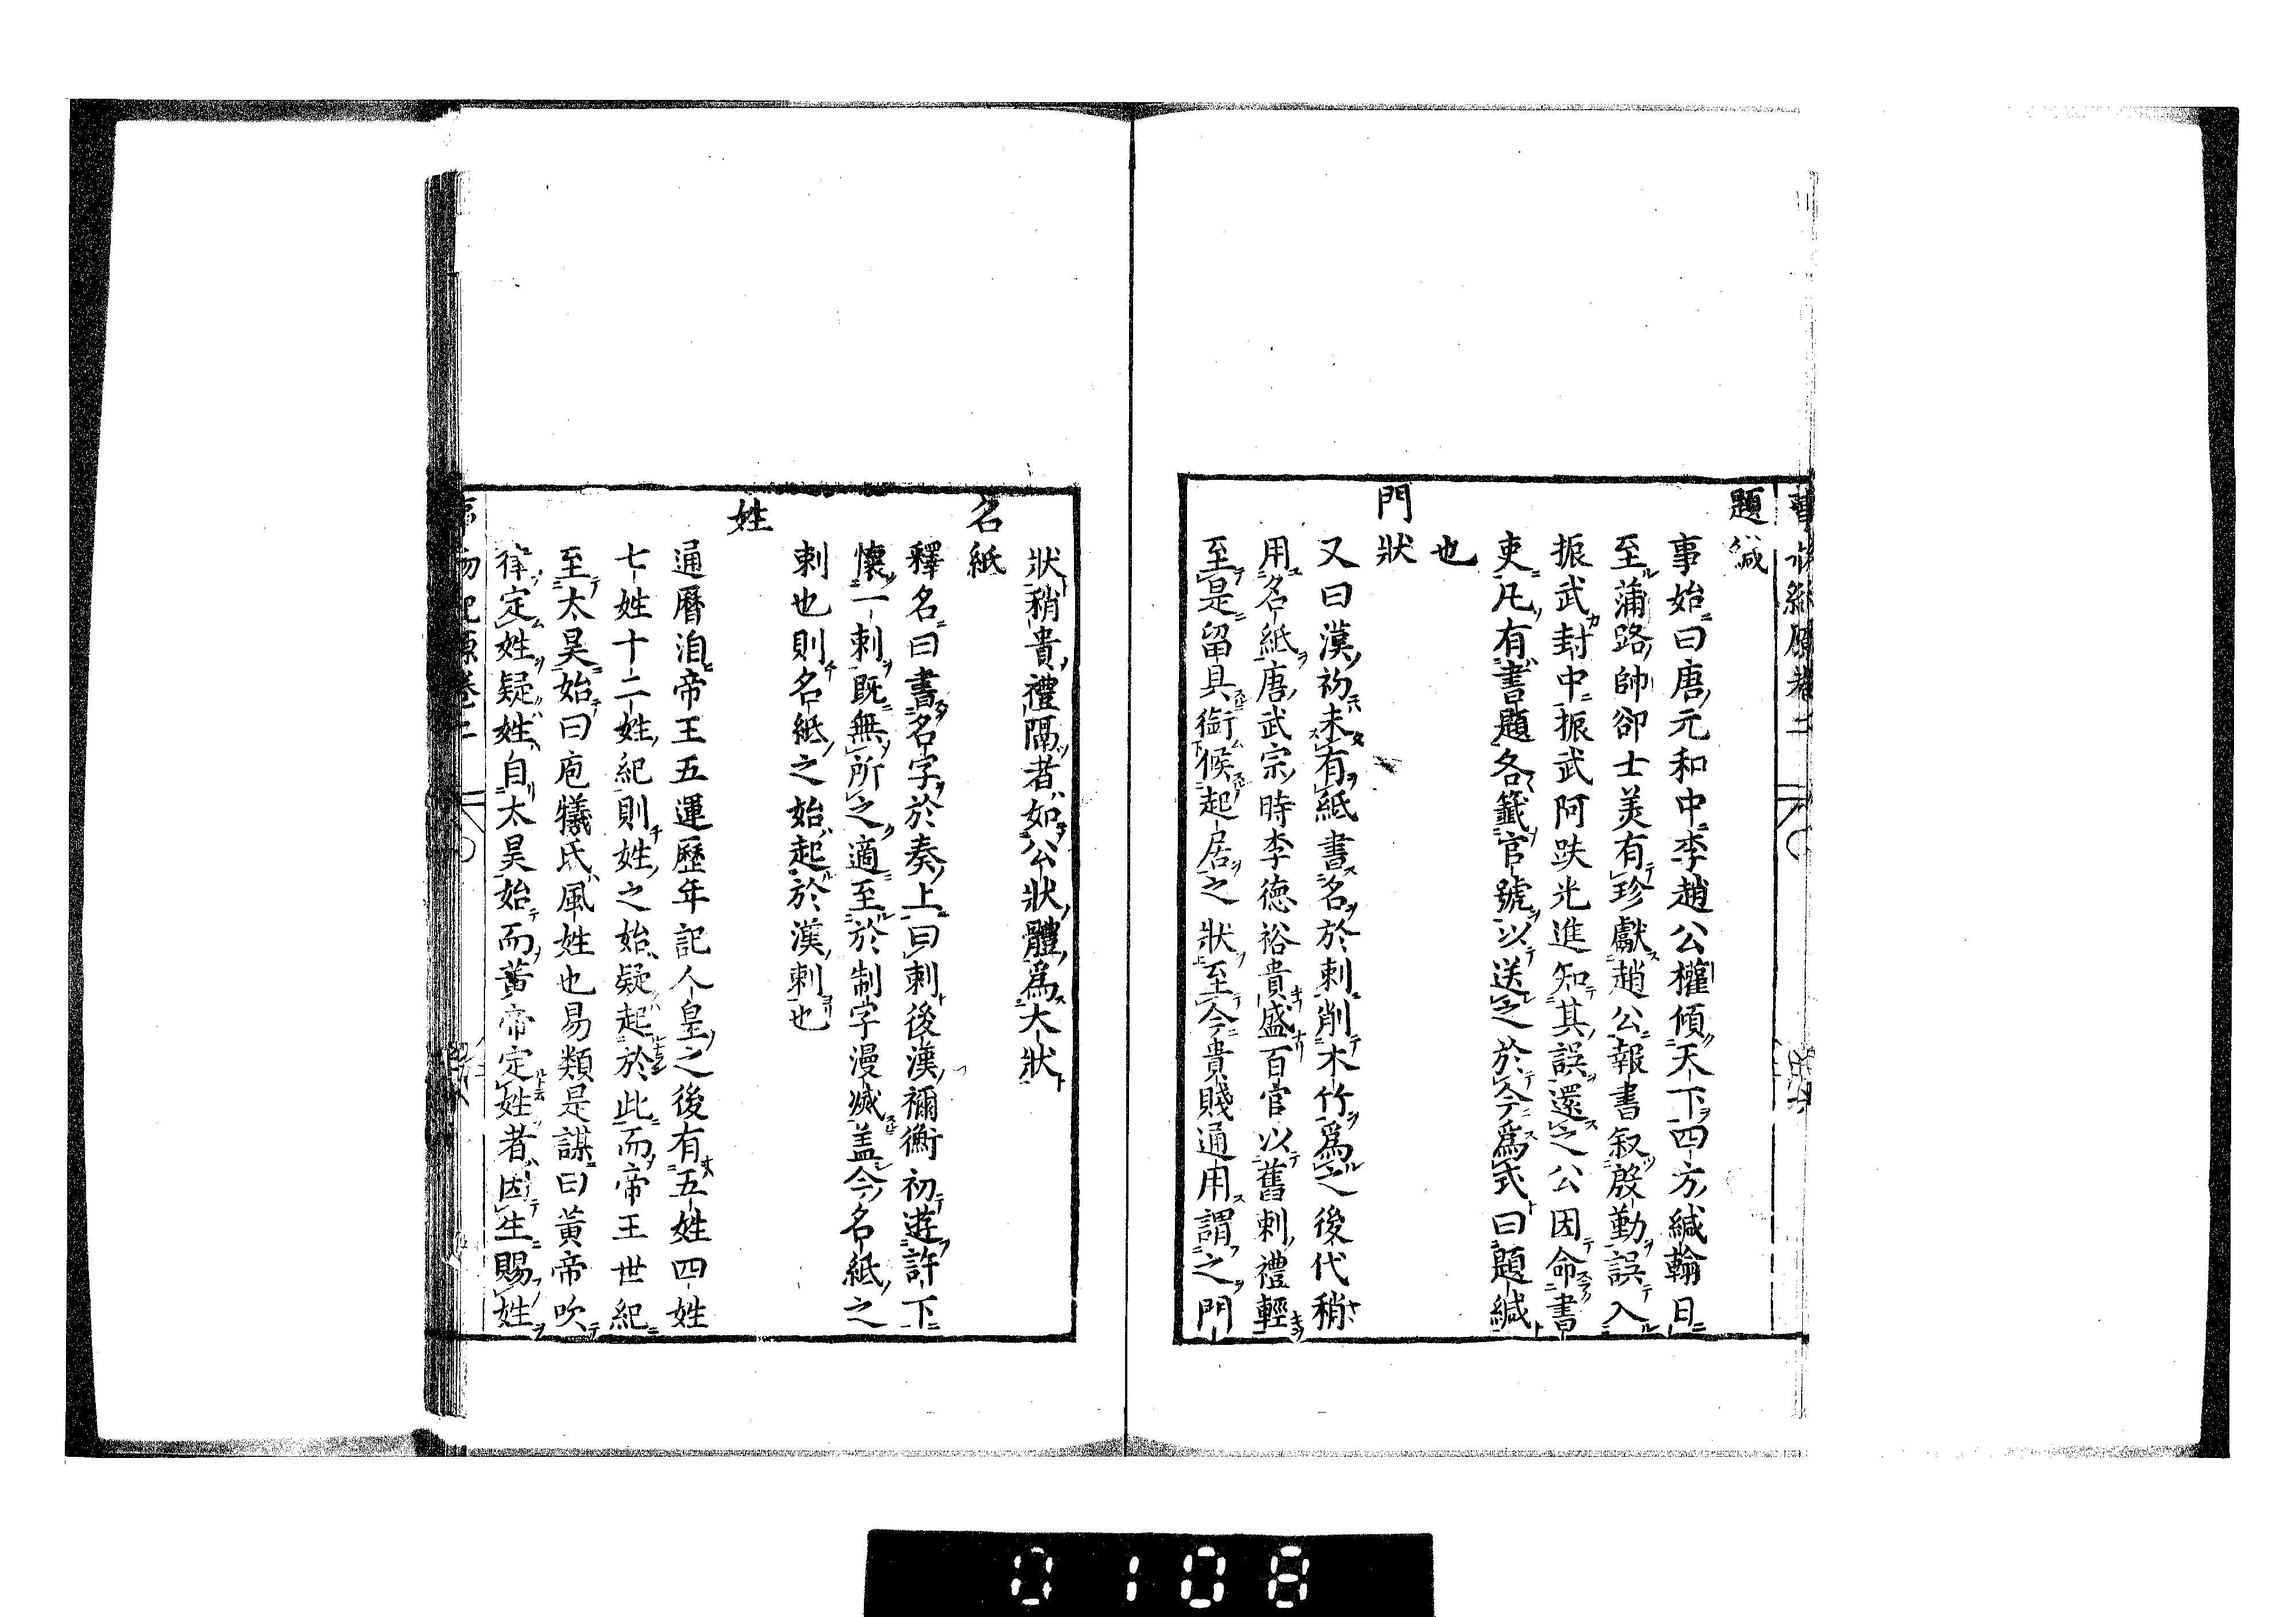 題緘
事始曰唐元和中李趙公權傾天下四方緘翰日
至蒲路帥郤士美有珍獻趙公報書叙殷勤誤入
振武封中振武阿跌光進知其誤還之公因命書
吏凡有書題各籤官號以送之於今爲式曰題緘
也
門狀
又曰漢初未有紙書名於刺削木竹爲之後代稍
用名紙唐武宗時李德裕貴盛百官以舊刺禮輕
至是留具銜候起居之狀至今貴賤通用謂之門
狀稍貴禮隔者如公狀體爲大狀
名紙
釋名曰書名字於奏上曰刺後漢禰衡初遊許下
懷一刺既無所之適至於制字漫滅盖今名紙之
刺也則名紙之始起於漢刺也
姓
通曆洎帝王五運歷年記人皇之後有五姓四姓
七姓十二姓紀則姓之始疑起於此而帝王世紀
至太昊始曰庖犧氏風姓也易類是謀曰黃帝吹
律定姓疑姓自太昊始而黃帝定姓者因生賜姓
物紀原卷二
0108